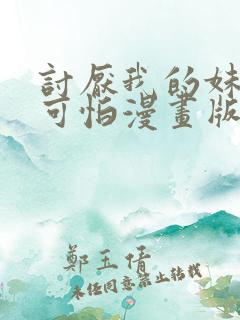 討厭我的妹
可怕漫畫版
鄭玉倩
未經同意禁止轉載